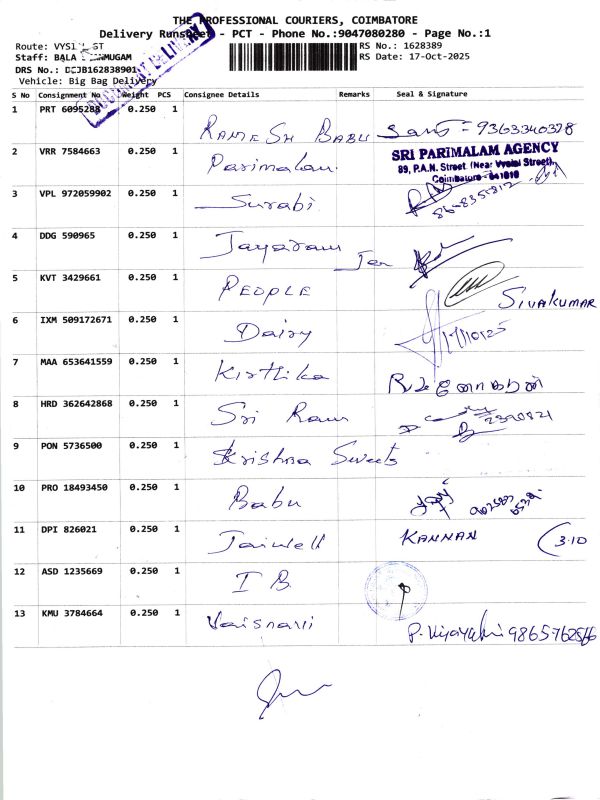 THE PROFESSIONAL COURIERS, COIMBATORE
Delivery Runsheet - PCT - Phone No.:9047080280 - Page No.:1
Route: VYSI ST
RS No.: 1628389
Staff: BALA MUGAM
RS Date: 17-Oct-2025
DRS No.: 162838901
DOCUMENT DELIVERY
Vehicle: Big Bag Delivery
S No Consignment No Weight PCS Consignee Details Remarks Seal & Signature
1 PRT 6095288 0.250 1
RAMESH BABU 9363340378
2 VRR 7584663 0.250 1 Parimalam
SRI PARIMALAM AGENCY
89, P.A.N. Street, (Near Vysial Street),
Coimbatore - 641019
3 VPL 972059902 0.250 1 Surabi
4 DDG 590965 0.250 1 Jayaram
5 KVT 3429661 0.250 1 PEOPLE SIVAKUMAR
6 IXM 509172671 0.250 1 Dairy 17/10/25
7 MAA 653641559 0.250 1 Kirthika
8 HRD 362642868 0.250 1 Sri Ram
9 PON 5736500 0.250 1 Krishna Sweets
10 PRO 18493450 0.250 1 Babu
11 DPI 826021 0.250 1 Jaiwell KANNAN 3.10
12 ASD 1235669 0.250 1 I B
13 KMU 3784664 0.250 1 Vaisnavi